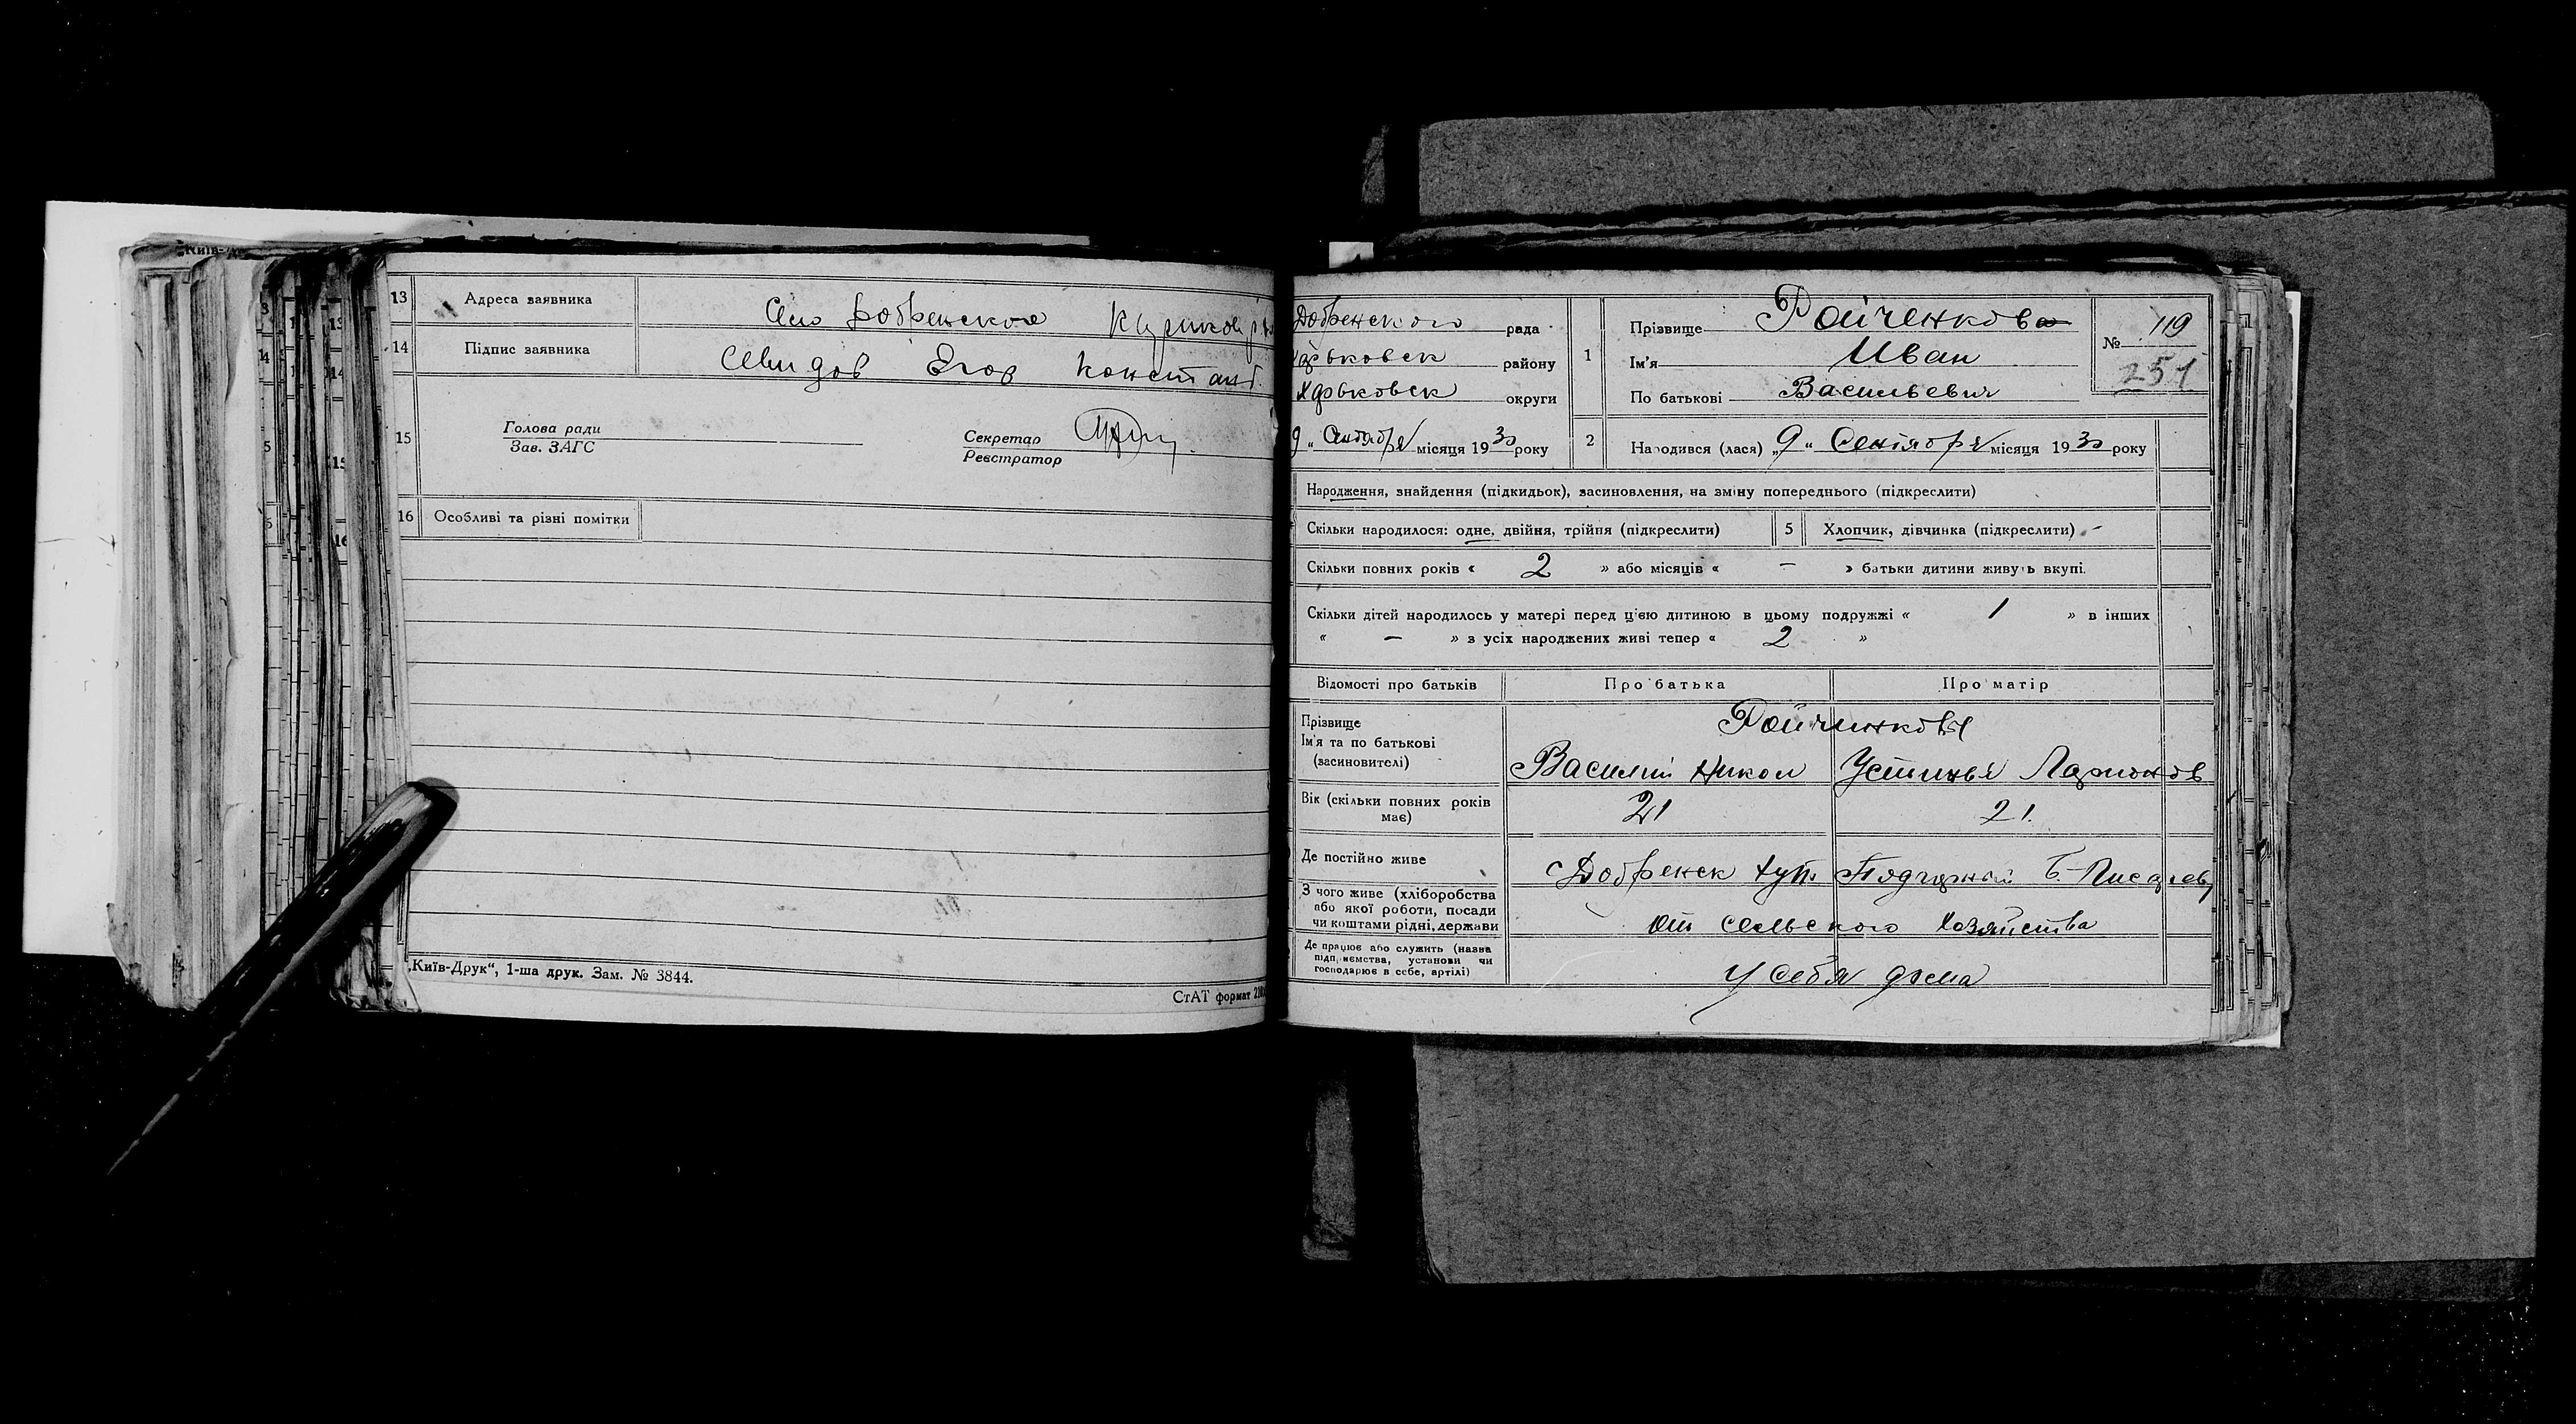 13 Адреса заявника Село Добренское
14 Підпис заявника Свидов Егор Констант.
15 Голова ради
Зав. ЗАГС
Секретар
Реєстратор
16 Особливі та різні помітки
„Київ-Друк“, 1-ша друк. Зам. № 3844.
СтАТ формат
Добренского рада
району
Харьковск округи
9 „ Сентября місяця 1930 року
1 Прізвище Ройченков
Ім'я Иван
По батькові Васильевич
№ 119
251
2 Народився (лася) „9“ Сентября місяця 1930 року
Народження, знайдення (підкидьок), засиновлення, на зміну попереднього (підкреслити)
Скільки народилося: одне, двійня, трійня (підкреслити)
5 Хлопчик, дівчинка (підкреслити)
Скільки повних років « 2 » або місяців « — » батьки дитини живуть вкупі.
Скільки дітей народилось у матері перед цією дитиною в цьому подружжі « 1 » в інших
« — » з усіх народжених живі тепер « 2 »
Відомості про батьків Про батька Про матір
Прізвище Ройченковы
Ім'я та по батькові
(засиновителі) Василий Никол Устинья Ларионов
Вік (скільки повних років
має) 21 21.
Де постійно живе Добренск хут.
З чого живе (хліборобства
або якої роботи, посади
чи коштами рідні, держави от сельского хозяйства
Де працює або служить (назва
підприємства, установи чи
господарює в себе, артілі) у себя дома